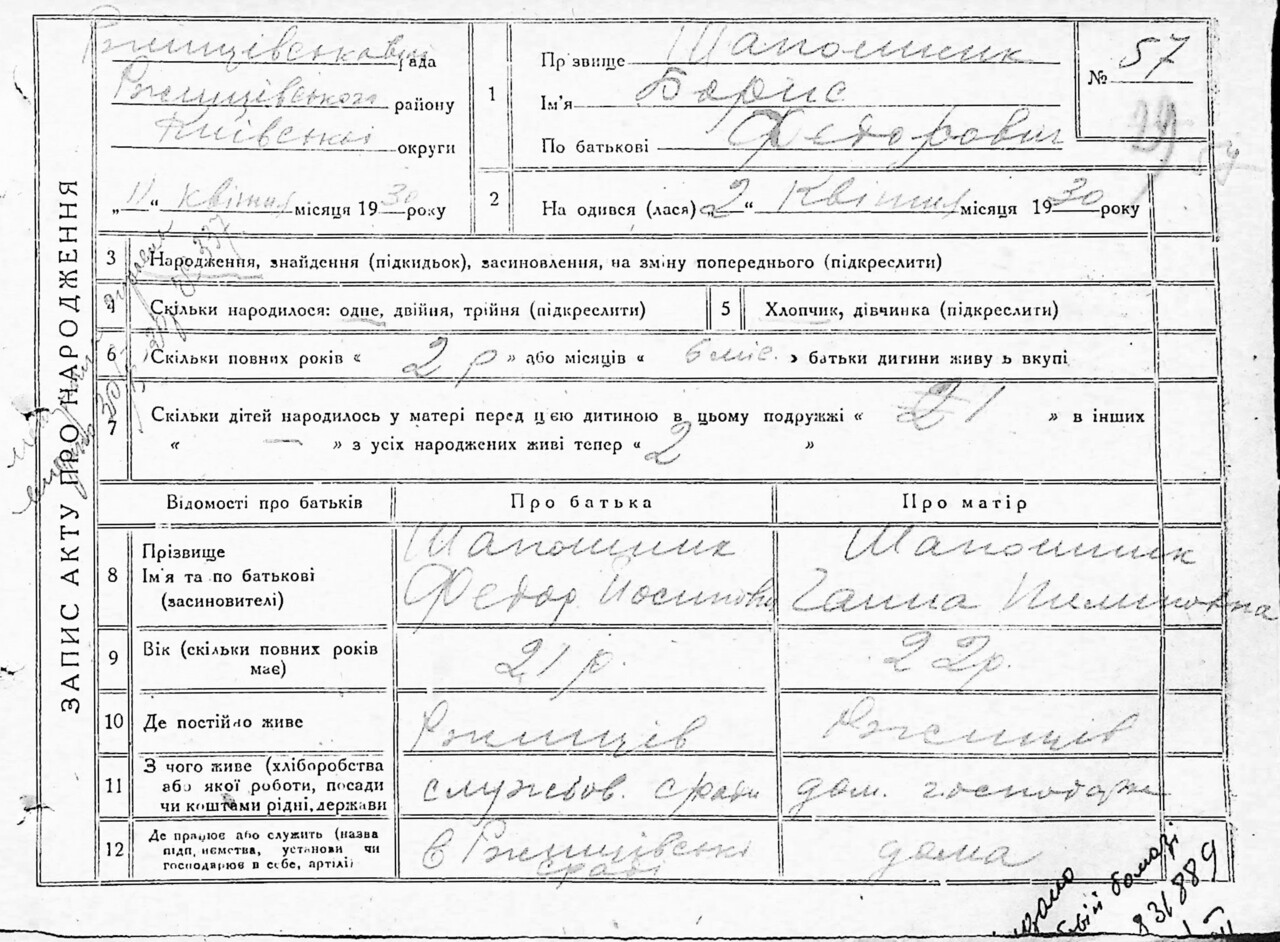 ЗАПИС АКТУ ПРО НАРОДЖЕННЯ
Ржищівська рада
Ржищівського району
Київської округи
„11“ квітня місяця 1930 року
1
Прізвище Шапошник
Ім'я Борис
По батькові Федорович
№ 57
29
2
Народився (лася) „2“ Квітня місяця 1930 року
3
Народження, знайдення (підкидьок), засиновлення, на зміну попереднього (підкреслити)
4
Скільки народилося: одне, двійня, трійня (підкреслити)
5
Хлопчик, дівчинка (підкреслити)
6
Скільки повних років « 2 р » або місяців « 6 міс. » батьки дитини живуть вкупі
7
Скільки дітей народилось у матері перед цією дитиною в цьому подружжі « 1 » в інших
« — » з усіх народжених живі тепер « 2 »
Відомості про батьків
Про батька
Про матір
8
Прізвище
Ім'я та по батькові
(засиновителі)
Шапошник
Федор Йосипович
Шапошник
Ганна Пилиповна
9
Вік (скільки повних років
має)
21 р.
22 р.
10
Де постійно живе
Ржищів
Ржищів
11
З чого живе (хліборобства
або якої роботи, посади
чи коштами рідні, держави
службов. сради
дом. господарка
12
Де працює або служить (назва
підприємства, установи чи
господарює в себе, артілі)
в Ржищівські
сраді
дома
831889